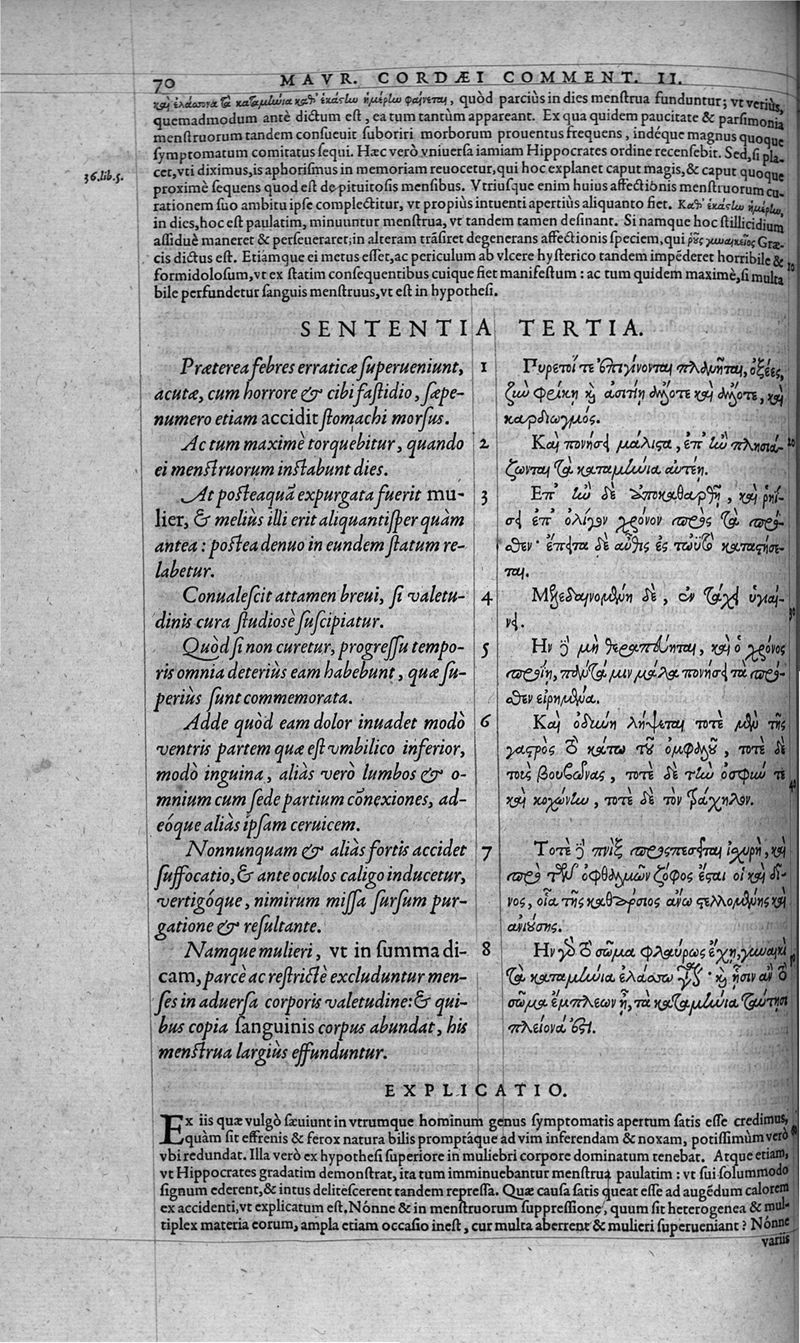 70 MAVR. CORDÆI COMMENT. II.
καὶ ἐλάσσονα τὰ καταμήνια καθ' ἑκάστην ἡμέρην φαίνεται, quòd parciùs in dies menſtrua funduntur; vt veriùs,
quemadmodum antè dictum eſt, ea tum tantùm appareant. Ex qua quidem paucitate & parſimonia
menſtruorum tandem conſueuit ſuboriri morborum prouentus frequens, indéque magnus quoque
ſymptomatum comitatus ſequi. Hæc verò vniuerſa iamiam Hippocrates ordine recenſebit. Sed, ſi pla-
36. lib. 5.
cet, vti diximus, is aphoriſmus in memoriam reuocetur, qui hoc explanet caput magis, & caput quoque
proximè ſequens quod eſt de pituitoſis menſibus. Vtriuſque enim huius affectionis menſtruorum cu-
rationem ſuo ambitu ipſe complectitur, vt propiùs intuenti apertiùs aliquanto fiet. Καθ' ἑκάστην ἡμέρην,
in dies, hoc eſt paulatim, minuuntur menſtrua, vt tandem tamen deſinant. Si namque hoc ſtillicidium
aſſiduè maneret & perſeueraret, in alteram trãſiret degenerans affectionis ſpeciem, qui ῥόος γυναικεῖος Græ-
cis dictus eſt. Etiámque ei metus eſſet, ac periculum ab vlcere hyſterico tandem impẽderet horribile &
10
formidoloſum, vt ex ſtatim conſequentibus cuique fiet manifeſtum: ac tum quidem maximè, ſi multa
bile perfundetur ſanguis menſtruus, vt eſt in hypotheſi.
SENTENTIA TERTIA.
Præterea febres erraticæ ſuperueniunt,
acutæ, cum horrore & cibi faſtidio, ſæpe-
numero etiam accidit ſtomachi morſus.
Ac tum maximè torquebitur, quando
ei menſtruorum inſtabunt dies.
At poſteaquã expurgata fuerit mu-
lier, & meliùs illi erit aliquantiſper quàm
antea: poſtea denuo in eundem ſtatum re-
labetur.
Conualeſcit attamen breui, ſi valetu-
dinis cura ſtudioſè ſuſcipiatur.
Quòd ſi non curetur, progreſſu tempo-
ris omnia deteriùs eam habebunt, quæ ſu-
periùs ſunt commemorata.
Adde quòd eam dolor inuadet modò
ventris partem quæ eſt vmbilico inferior,
modò inguina, aliàs verò lumbos & o-
mnium cum ſede partium cõnexiones, ad-
eóque aliàs ipſam ceruicem.
Nonnunquam & aliàs fortis accidet
ſuffocatio, & ante oculos caligo inducetur,
vertigóque, nimirum miſſa ſurſum pur-
gatione & reſultante.
Namque mulieri, vt in ſumma di-
cam, parcè ac reſtrictè excluduntur men-
ſes in aduerſa corporis valetudine: & qui-
bus copia ſanguinis corpus abundat, his
menſtrua largiùs effunduntur.
1 Πυρετοί τε ἐπιγίνονται πλανῆται, ὀξέες,
ξὺν φρίκῃ καὶ ἀσιτίῃ ἄλλοτε καὶ ἄλλοτε, καὶ
καρδιωγμός.
2 Καὶ πονήσει μάλιστα, ἐπ' ἢν πλησιά-
ζωνται τὰ καταμήνια αὐτέῃ.
3 Ἐπ' ἢν δὲ ἀποκαθαρθῇ, καὶ ῥηΐ-
σει ἐπ' ὀλίγον χρόνον πρὸς τὰ πρό-
σθεν· ἔπειτα δὲ αὖθις ἐς τωὐτὸ καταστήσε-
ται.
4 Μελεδαινομένη δὲ, ἐν τάχει ὑγιαί-
νει.
5 Ἢν δὲ μὴ θεραπεύηται, καὶ ὁ χρόνος
προΐῃ, πολλά μιν μάλα πονήσει τὰ πρό-
σθεν εἰρημένα.
6 Καὶ ὀδύνη λήψεται τοτὲ μὲν τῆς
γαστρὸς τὸ κάτω τοῦ ὀμφαλοῦ, τοτὲ δὲ
τοὺς βουβῶνας, τοτὲ δὲ τὴν ὀσφύν τε
καὶ κοχώνην, τοτὲ δὲ τὸν τράχηλον.
7 Τοτὲ δὲ πνὶξ προσπεσεῖται ἰσχυρὴ, καὶ
πρὸ τῶν ὀφθαλμῶν ζόφος ἔσται οἱ καὶ δῖ-
νος, οἷα τῆς καθάρσιος ἄνω στελλομένης καὶ
ἀνιούσης.
8 Ἢν γὰρ τὸ σῶμα φλαύρως ἔχῃ, γυναικὶ
τὰ καταμήνια ἐλάσσω γίνεται· καὶ ᾗσιν ἂν τὸ
σῶμα ἔμπλεων ᾖ, τὰ καταμήνια ταύτῃσι
πλείονά ἐστι.
EXPLICATIO.
Ex iis quæ vulgò ſæuiunt in vtrumque hominum genus ſymptomatis apertum ſatis eſſe credimus,
quàm ſit effrenis & ferox natura bilis promptáque ad vim inferendam & noxam, potiſſimùm verò
vbi redundat. Illa verò ex hypotheſi ſuperiore in muliebri corpore dominatum tenebat. Atque etiam,
vt Hippocrates gradatim demonſtrat, ita tum imminuebantur menſtrua paulatim: vt ſui ſolummodo
ſignum ederent, & intus deliteſcerent tandem repreſſa. Quæ cauſa ſatis queat eſſe ad augẽdum calorem
ex accidenti, vt explicatum eſt. Nónne & in menſtruorum ſuppreſſione, quum ſit heterogenea & mul-
tiplex materia eorum, ampla etiam occaſio ineſt, cur multa aberrent & mulieri ſuperueniant? Nónne
variis